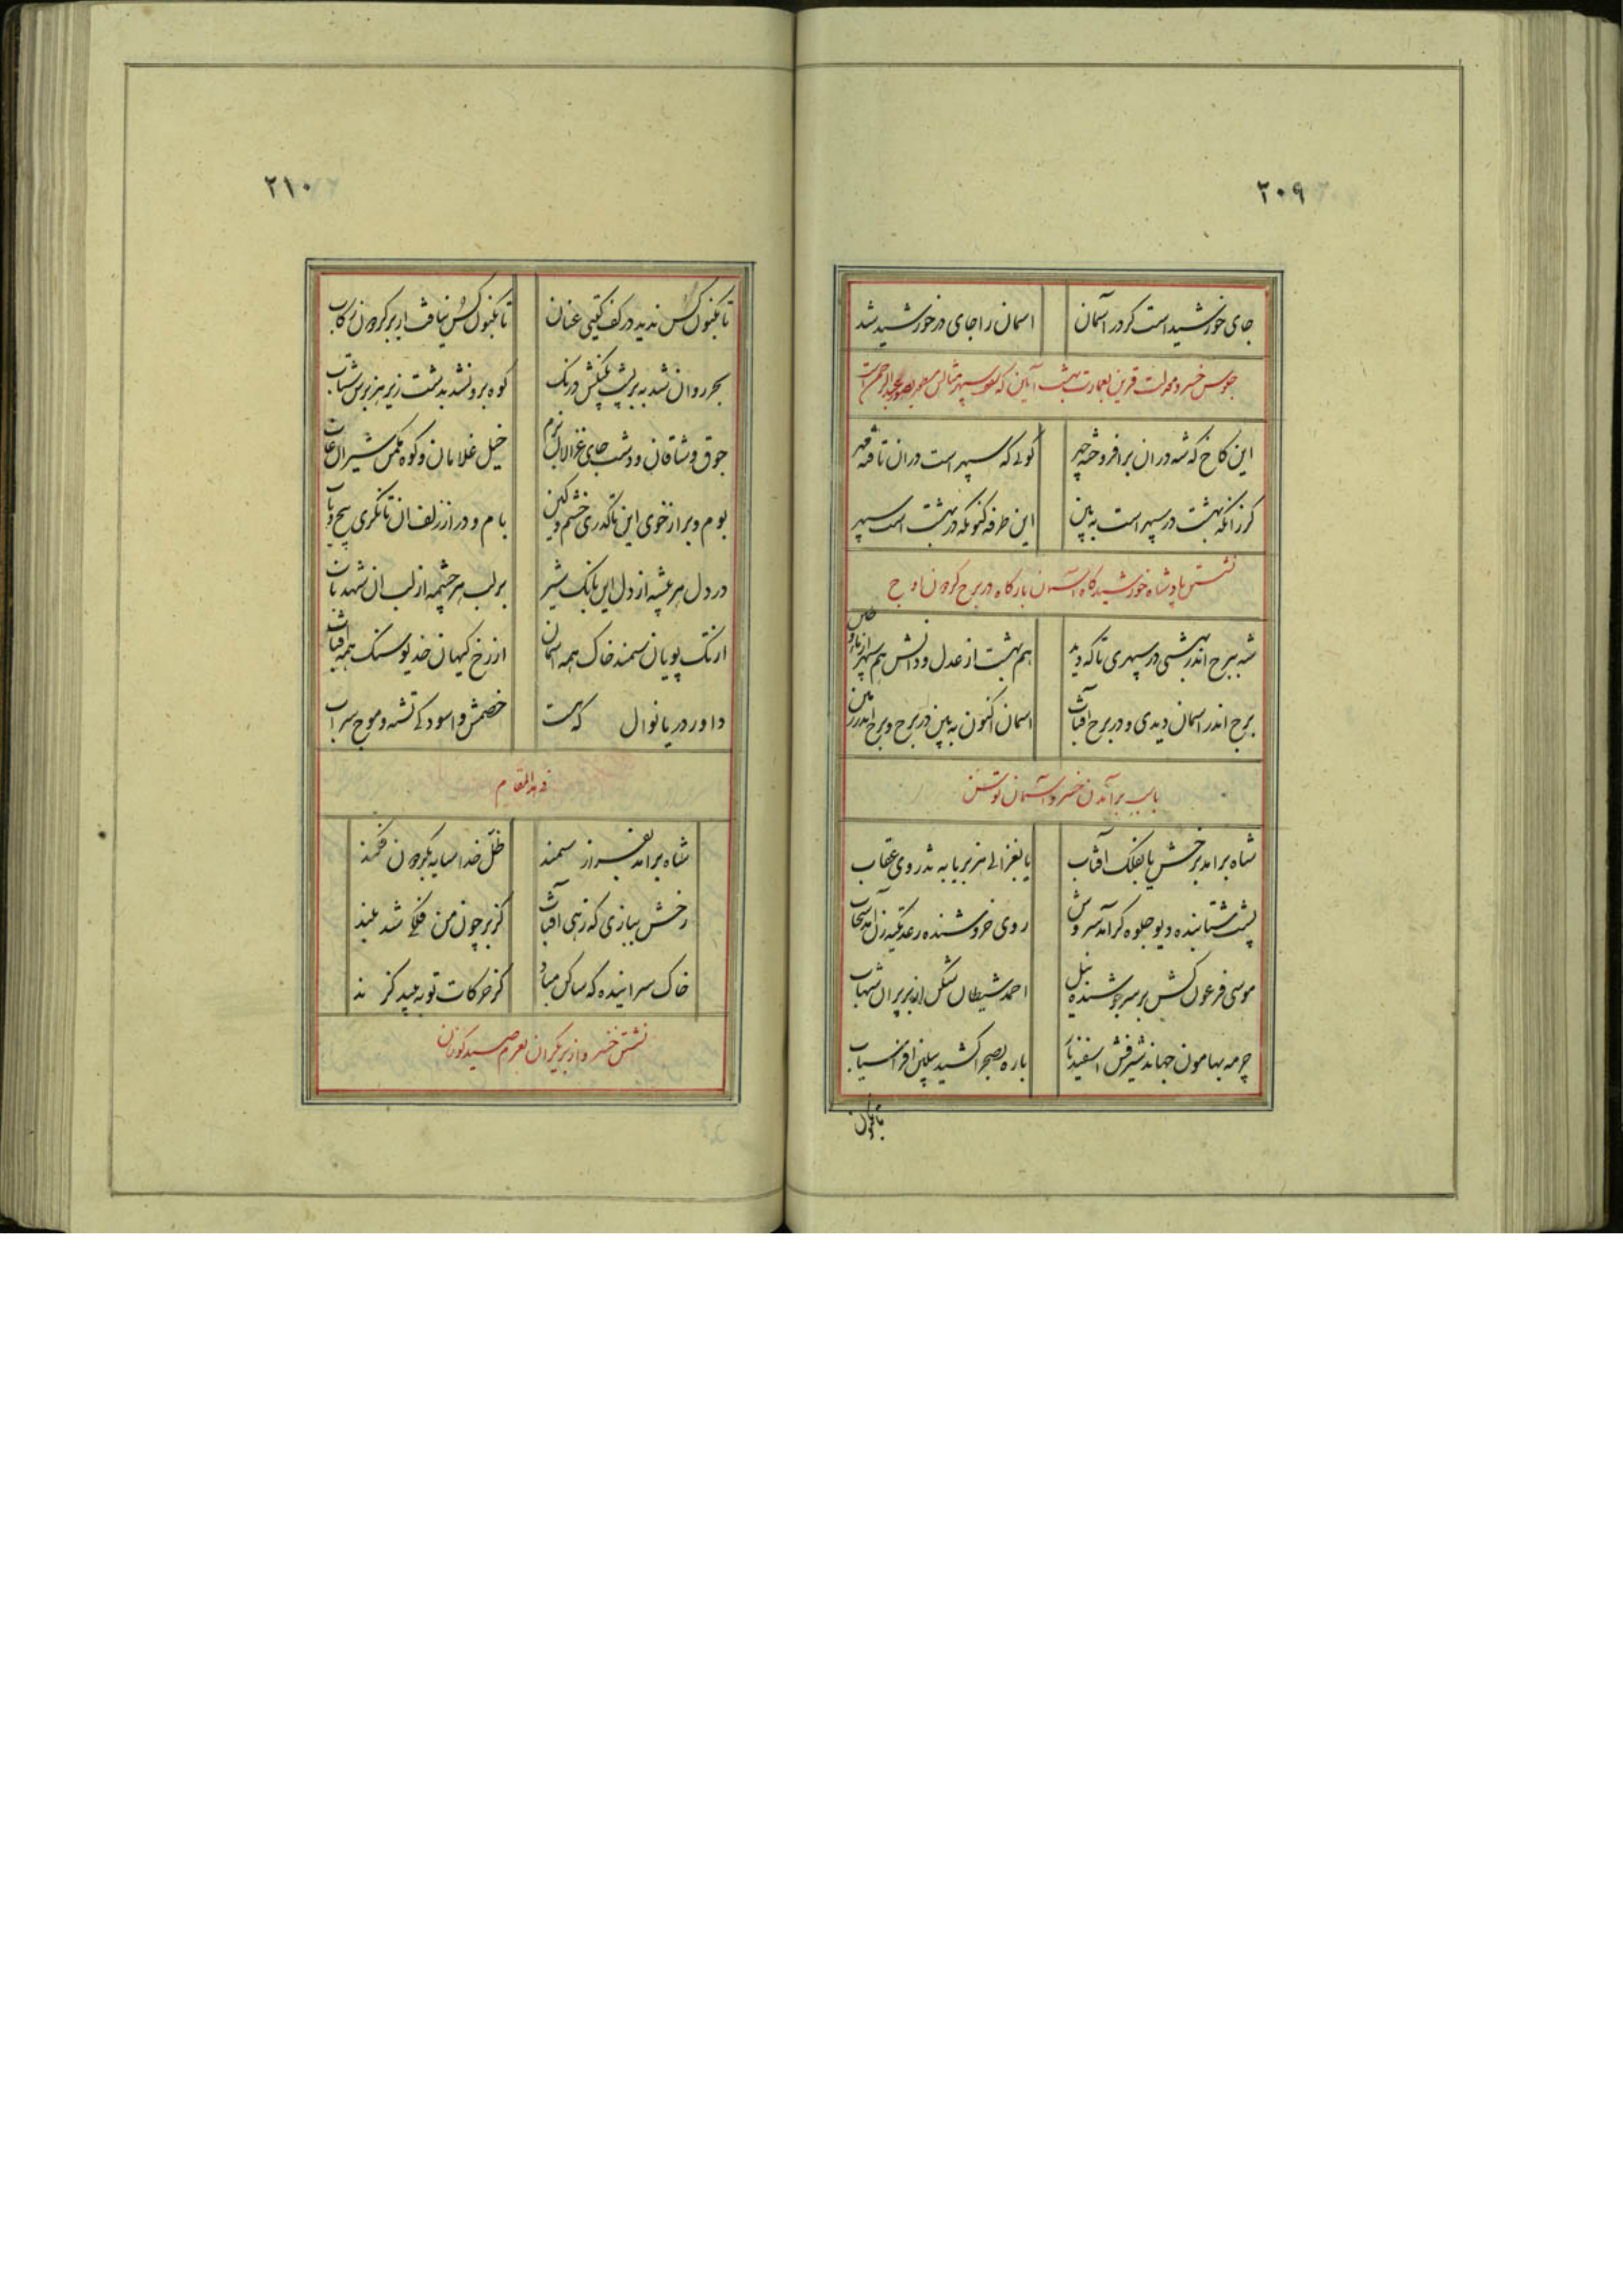 ۲۰۹
جای خورشید است گر در آسمان اسمان را جای در خورشید شد
جلوس خسرو معدلت قرین بعمارت بهشت آیین که
این کاخ که شه در ان برافروخته چهر کوئی که سپهر است در ان تافته مهر
کر زانکه بهشت در سپهر است به بین این طرفه کنونکه در بهشت است سپهر
نشستن پادشاه خورشید کاه اسمان بارکاه در برج کردون اوج
شه ببرج اندر بهشتی در سپهری تا که دید هم بهشت از عدل و دانش هم سپهر از
برج اندر اسمان دیدی و در برج آفتاب اسمان اکنون به بین در برج و برج اندر زمین
باسب برآمدن خسرو آسمان توسن
شاه برامد برخش یا بفلک آفتاب یا بغزالی هزبر یا به تذروی عقاب
پشت شتابنده دیو جلوه کر آمد سروش روی خروشنده رعد تکیه زن آمد سحاب
موسی فرعون کش بر سر جوشنده نیل احمد شیطان شکن از بر پران شهاب
چرمه بهامون جهاند شیرفش اسفندیار باره بصحرا کشید پیلتن افراسیاب
تاکنون
۲۱۰
تاکنون کس ندید در کف کیتی عنان تاکنون کس نیافت از بر کردون رکاب
بحر روان نشد به بر پشت درنک کوه برونشد بدشت زیر هزبرش شتاب
جوق وشاقان و دشت جای غزالان بزم خیل غلامان و کوه مکمن شیران غاب
بوم و بر از خوی این تا کذری خشم و کین بام و در از زلف ان تا نکری پیچ و تاب
در دل هر بیشه از دل این بانک شیر بر لب هر چشمه از لب ان شهد ناب
از تک پویان سمند خاک همه اسمان از رخ کیهان خدیو سنک همه آفتاب
داور دریا نوال که هست خصمش و اسودکی تشنه و موج سراب
فی هذا المقام
شاه برامد بفراز سمند ظل خدا سایه بکردون فکند
رخش ببازی که زهی آفتاب کز بر چون من فلکی شد بلند
خاک سراینده که ساکن مباد کز حرکات تو به بید کزند
نشستن خسرو از بر یکران بعزم صید کوزنان